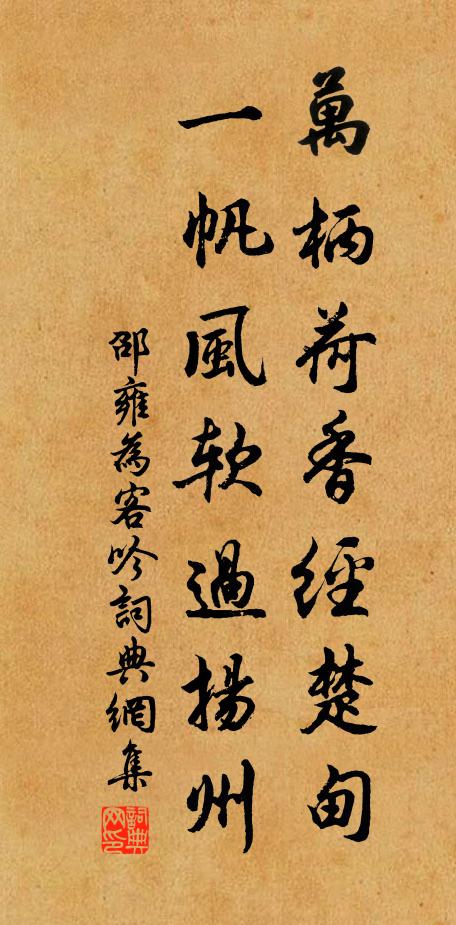 萬柄荷香經楚甸
一帆風軟過揚州
邵雍為客吟詞典網集
詞典网印